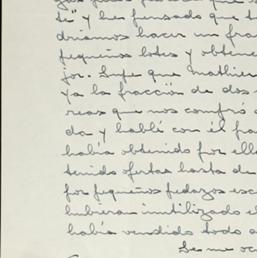 te" y he pensado que t
dríamos hacer un fra
pequeños lotes y obtene
jor. Supe que Mathieu
ya la fracción de dos
reas que nos compró a
da y hablé con él pa
había obtenido por ell
tenido ofertas hasta de
por pequeños pedazos esc
hubieran inutilizado el
había vendido todo a
Se me oc